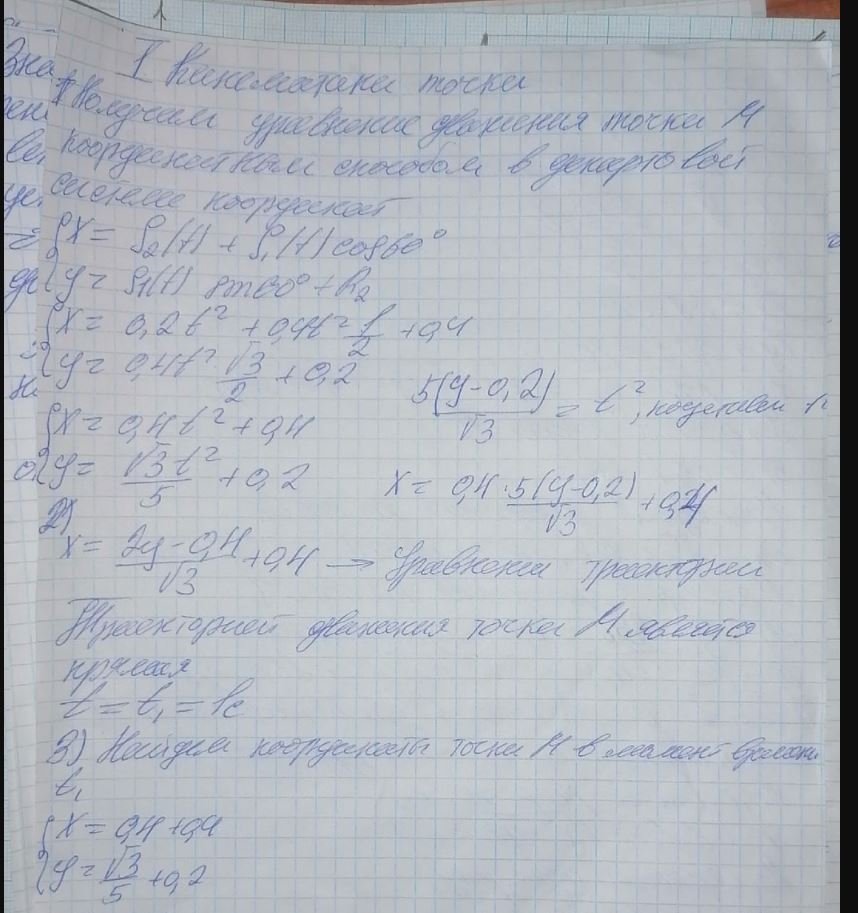 I Кинематика точки
1) Получим уравнение движения точки М
координатным способом в декартовой
системе координат
{x = S₂(t) + S₁(t) cos60°
{y = S₁(t) sin60° + R₂
{x = 0,2t² + 0,4t² 1/2 + 0,4
{y = 0,4t² · √3/2 + 0,2
5(y-0,2)/√3 = t², подставим
{x = 0,4t² + 0,4
{y = √3t²/5 + 0,2
x = 0,4 · 5(y-0,2)/√3 + 0,4
2)
x = 2y-0,4/√3 + 0,4 → Уравнение траектории
Траекторией движения точки М является
прямая
t = t₁ = 1с
3) Найдем координаты точки М в момент времени
t₁
{x = 0,4 + 0,4
{y = √3/5 + 0,2